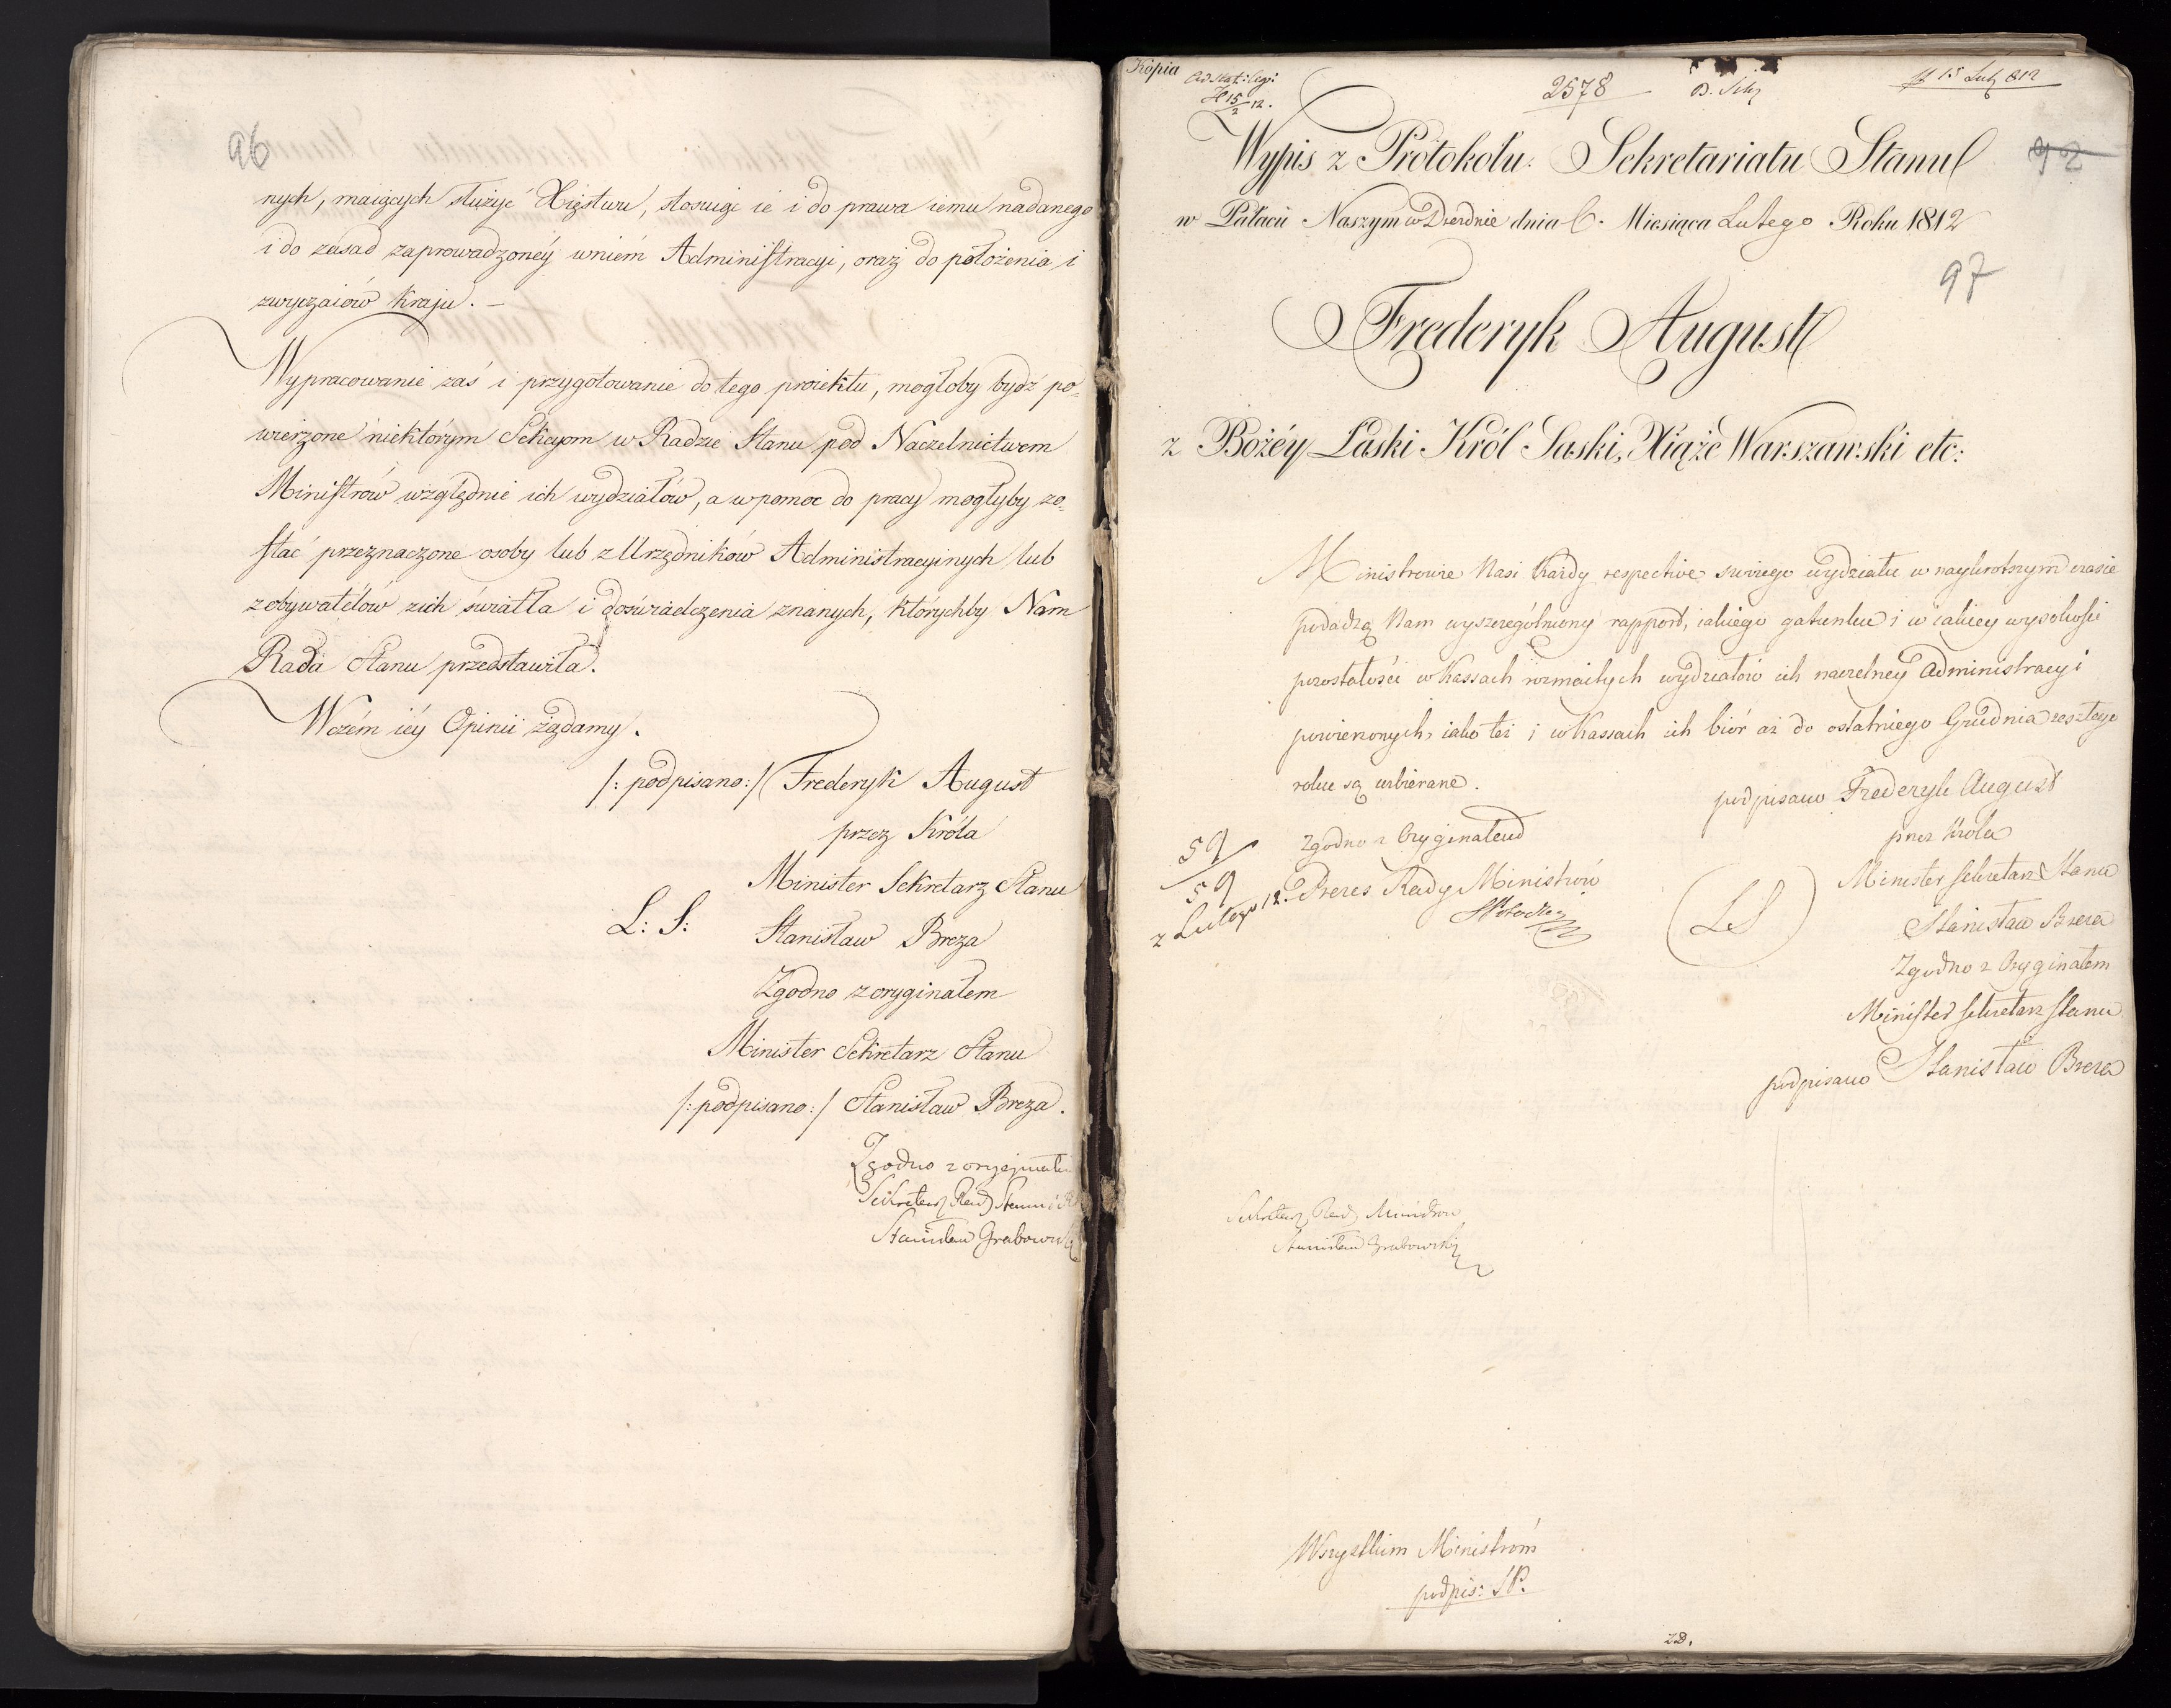 96
nych, maiących służyć Xięstwu, stosuiąc ie i do prawa iemu nadanego
i do zasad zaprowadzonéy wniém Administracyi, oraz do położenia i
zwyczaiów kraju. –
Wypracowanie zaś i przygotowanie do tego proiektu, mogłoby bydź po=
wierzone niektórym Sekcyom w Radzie Stanu pod Naczelnictwem
Ministrów względnie ich wydziałów, a w pomoc do pracy mogłyby zo=
stać przeznaczone osoby lub z Urzędników Administracyinych lub
z obywatelów z ich światła i doświadczenia znanych, którychby Nam
Rada Stanu przedstawiła.
Wczém iéy Opinii żądamy.
/: podpisano :/ Frederyk August
przez Króla
Minister Sekretarz Stanu
L: S: Stanisław Breza
Zgodno z oryginałem
Minister Sekretarz Stanu
/: podpisano :/ Stanisław Breza.
Zgodno z oryginałem
Sekretarz Rady Stanu
Stanisław Grabowski
Kópia
2578
15 Lut 812
Wypis z Protokołu Sekretariatu Stanu
92
w Pałacu Naszym w Dreźnie dnia 6. Miesiąca Lutego Roku 1812
97
Frederyk August
z Bożéy Łaski Król Saski, Xiąże Warszawski etc:
Ministrowie Nasi Każdy respective swoiego wydziału w naykrotszym czasie
podadzą Nam wyszczególniony rapport, iakiego gatunku i w iakiey wysokości
pozostałości w Kassach rozmaitych wydziałów ich naczelney Administracyi
powierzonych, iako też i w Kassach ich biór aż do ostatniego Grudnia zeszłego
roku są uzbierane.
podpisano Frederyk August
przez Króla
Minister Sekretarz Stanu
LS
Stanisław Breza
Zgodno z Oryginałem
Minister Sekretarz Stanu
podpisano Stanisław Breza
59
Zgodno z Oryginałem
59
z Lutego 12.
Prezes Rady Ministrów
Sekretarz Rady Ministrów
Stanisław Grabowski
Wszystkim Ministrom
podpis: SP.